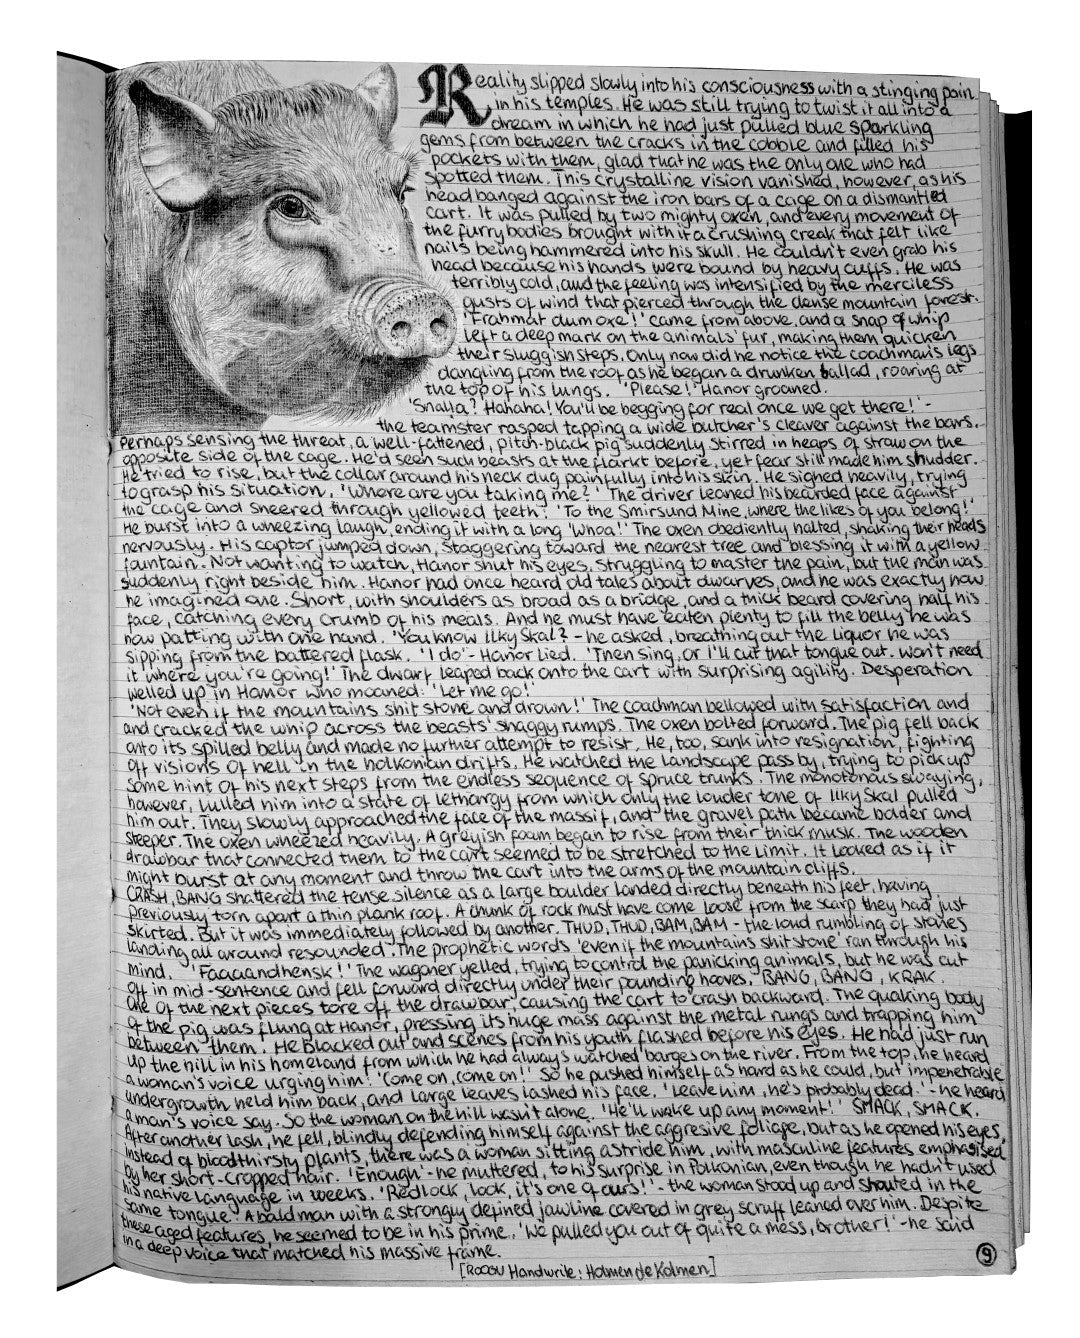 Reality slipped slowly into his consciousness with a stinging pain
in his temples. He was still trying to twist it all into a
dream in which he had just pulled blue sparkling
gems from between the cracks in the cobble and filled his
pockets with them, glad that he was the only one who had
spotted them. This crystalline vision vanished, however, as his
head banged against the iron bars of a cage on a dismantled
cart. It was pulled by two mighty oxen, and every movement of
the furry bodies brought with it a crushing creak that felt like
nails being hammered into his skull. He couldn't even grab his
head because his hands were bound by heavy cuffs. He was
terribly cold, and the feeling was intensified by the merciless
gusts of wind that pierced through the dense mountain forest.
'Frahmat dum oxe!' came from above, and a snap of whip
left a deep mark on the animals' fur, making them quicken
their sluggish steps. Only now did he notice the coachman's legs
dangling from the roof as he began a drunken ballad, roaring at
the top of his lungs. 'Please!' Hanor groaned.
'Snalla? Hahaha! You'll be begging for real once we get there!' -
the teamster rasped tapping a wide butcher's cleaver against the bars.
Perhaps sensing the threat, a well-fattened, pitch-black pig suddenly stirred in heaps of straw on the
opposite side of the cage. He'd seen such beasts at the flarkt before, yet fear still made him shudder.
He tried to rise, but the collar around his neck dug painfully into his skin. He sighed heavily, trying
to grasp his situation. 'Where are you taking me?' The driver leaned his bearded face against
the cage and sneered through yellowed teeth. 'To the Smirsund Mine, where the likes of you belong!'
He burst into a wheezing laugh, ending it with a long 'Whoa!' The oxen obediently halted, shaking their heads
nervously. His captor jumped down, staggering toward the nearest tree and blessing it with a yellow
fountain. Not wanting to watch, Hanor shut his eyes, struggling to master the pain, but the man was
suddenly right beside him. Hanor had once heard old tales about dwarves, and he was exactly how
he imagined one. Short, with shoulders as broad as a bridge, and a thick beard covering half his
face, catching every crumb of his meals. And he must have eaten plenty to fill the belly he was
now patting with one hand. 'You know Ilky Skal? - he asked, breathing out the liquor he was
sipping from the battered flask. 'I do' - Hanor lied. 'Then sing, or I'll cut that tongue out. Won't need
it where you're going!' The dwarf leaped back onto the cart with surprising agility. Desperation
welled up in Hanor who moaned: 'Let me go!'
'Not even if the mountains shit stone and drown!' The coachman bellowed with satisfaction and
and cracked the whip across the beasts' shaggy rumps. The oxen bolted forward. The pig fell back
onto its spilled belly and made no further attempt to resist. He, too, sank into resignation, fighting
off visions of hell in the holkonian drifts. He watched the landscape pass by, trying to pick up
some hint of his next steps from the endless sequence of spruce trunks. The monotonous swaying,
however, lulled him into a state of lethargy from which only the louder tone of Ilky Skal pulled
him out. They slowly approached the face of the massif, and the gravel path became bolder and
steeper. The oxen wheezed heavily. A greyish foam began to rise from their thick musk. The wooden
drawbar that connected them to the cart seemed to be stretched to the limit. It looked as if it
might burst at any moment and throw the cart into the arms of the mountain cliffs.
CRASH, BANG shattered the tense silence as a large boulder landed directly beneath his feet, having
previously torn apart a thin plank roof. A chunk of rock must have come loose from the scarp they had just
skirted. But it was immediately followed by another. THUD, THUD, BAM, BAM - the loud rumbling of stones
landing all around resounded. The prophetic words 'even if the mountains shit stone' ran through his
mind. 'Faaaandhensk!' The wagoner yelled, trying to control the panicking animals, but he was cut
off in mid-sentence and fell forward directly under their pounding hooves. BANG, BANG, KRAK.
One of the next pieces tore off the drawbar causing the cart to crash backward. The quaking body
of the pig was flung at Hanor, pressing its huge mass against the metal rungs and trapping him
between them. He blacked out and scenes from his youth flashed before his eyes. He had just run
up the hill in his homeland from which he had always watched barges on the river. From the top, he heard
a woman's voice urging him! 'Come on, come on!' So he pushed himself as hard as he could, but impenetrable
undergrowth held him back, and large leaves lashed his face. 'Leave him, he's probably dead.' - he heard
a man's voice say. So the woman on the hill wasn't alone. 'He'll wake up any moment!' SMACK, SMACK.
After another lash, he fell, blindly defending himself against the aggresive foliage, but as he opened his eyes,
instead of bloodthirsty plants, there was a woman sitting astride him, with masculine features emphasised
by her short-cropped hair. 'Enough' - he muttered, to his surprise in Polkanian, even though he hadn't used
his native language in weeks. 'Redlock, look, it's one of ours!' - the woman stood up and shouted in the
same tongue. A bald man with a strongly defined jawline covered in grey scruff leaned over him. Despite
these aged features, he seemed to be in his prime. 'We pulled you out of quite a mess, brother!' - he said
in a deep voice that matched his massive frame.
9
[ROCOU Handwrite: Holmen de Kolmen]